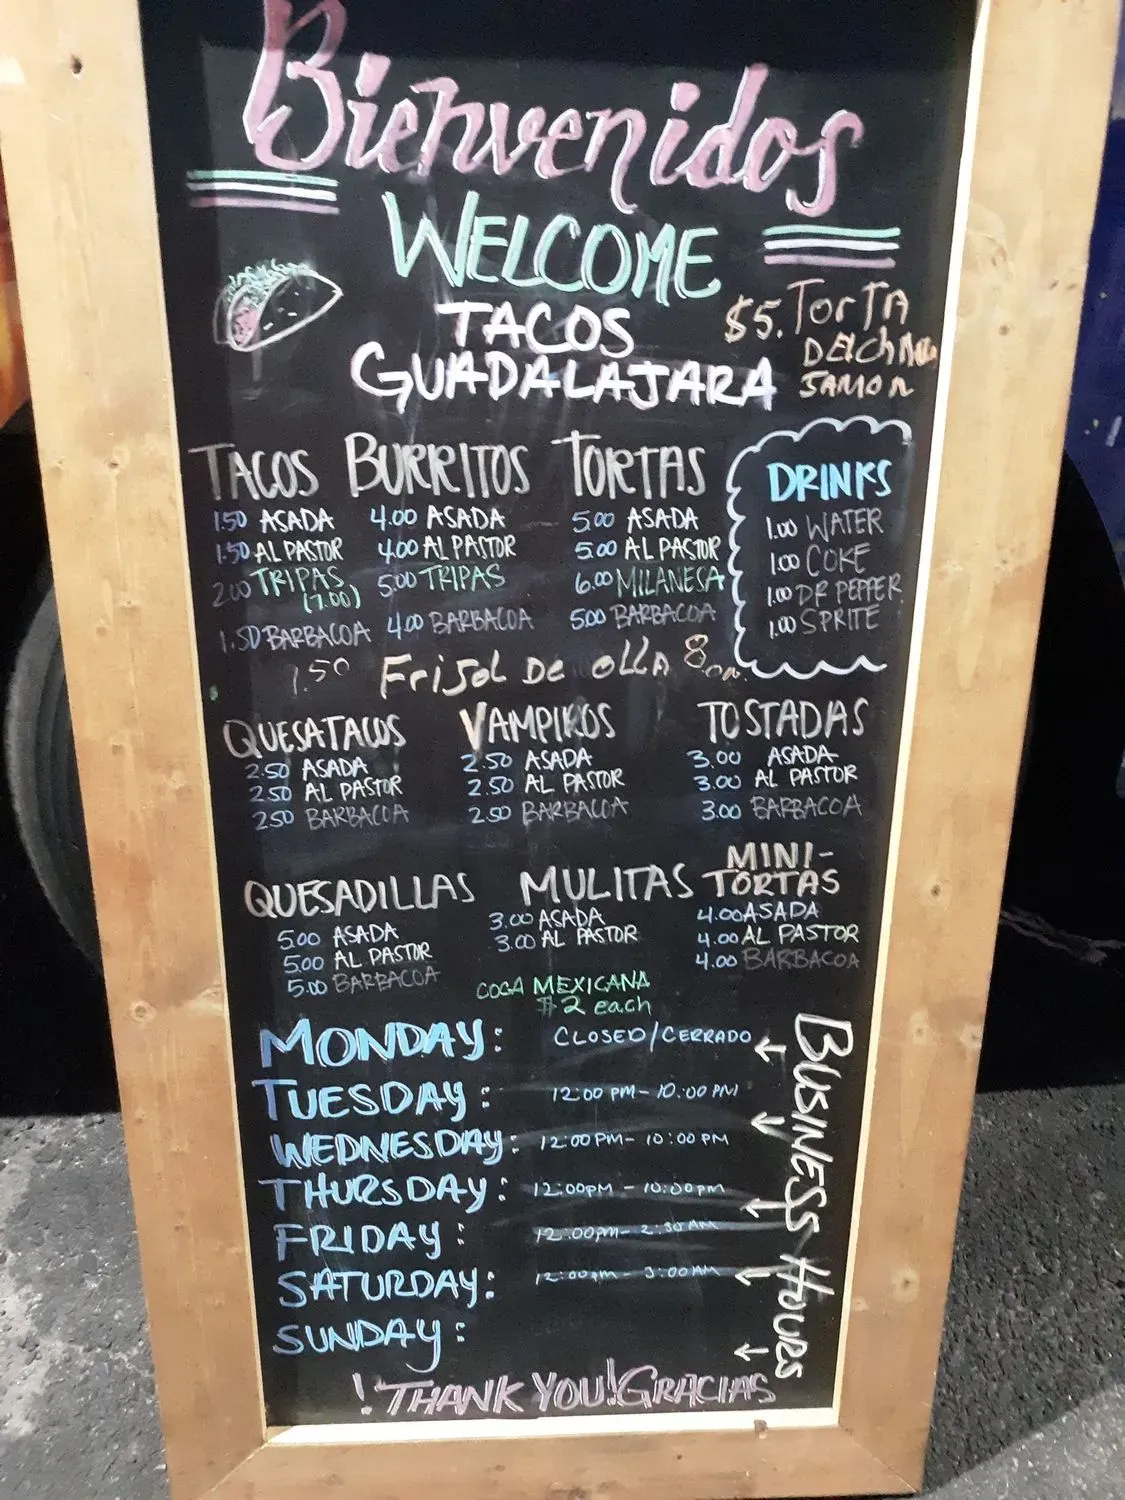 Bienvenidos
WELCOME
TACOS
GUADALAJARA
$5. TorTA
JAMON
TACOS
1.50 ASADA
1.50 AL PASTOR
2.00 TRIPAS
(7.00)
1.50 BARBACOA
1.50
BURRITOS
4.00 ASADA
4.00 AL PASTOR
5.00 TRIPAS
4.00 BARBACOA
TORTAS
5.00 ASADA
5.00 AL PASTOR
6.00 MILANESA
5.00 BARBACOA
DRINKS
1.00 WATER
1.00 COKE
1.00 DR PEPPER
1.00 SPRITE
FriJoL DE oLLA 8.00
QUESATACOS
2.50 ASADA
2.50 AL PASTOR
2.50 BARBACOA
VAMPIKOS
2.50 ASADA
2.50 AL PASTOR
2.50 BARBACOA
TOSTADAS
3.00 ASADA
3.00 AL PASTOR
3.00 BARBACOA
QUESADILLAS
5.00 ASADA
5.00 AL PASTOR
5.00 BARBACOA
MULITAS
3.00 ASADA
3.00 AL PASTOR
MINI-
TORTAS
4.00 ASADA
4.00 AL PASTOR
4.00 BARBACOA
COCA MEXICANA
$2 each
MONDAY: CLOSED/CERRADO
TUESDAY: 12:00 PM - 10:00 PM
WEDNESDAY: 12:00 PM - 10:00 PM
THURSDAY: 12:00pm - 10:00pm
FRIDAY: 12:00pm - 2:30 AM
SATURDAY: 12:00pm - 3:00AM
SUNDAY:
BUSINESS HOURS
! THANK YOU! GRACIAS